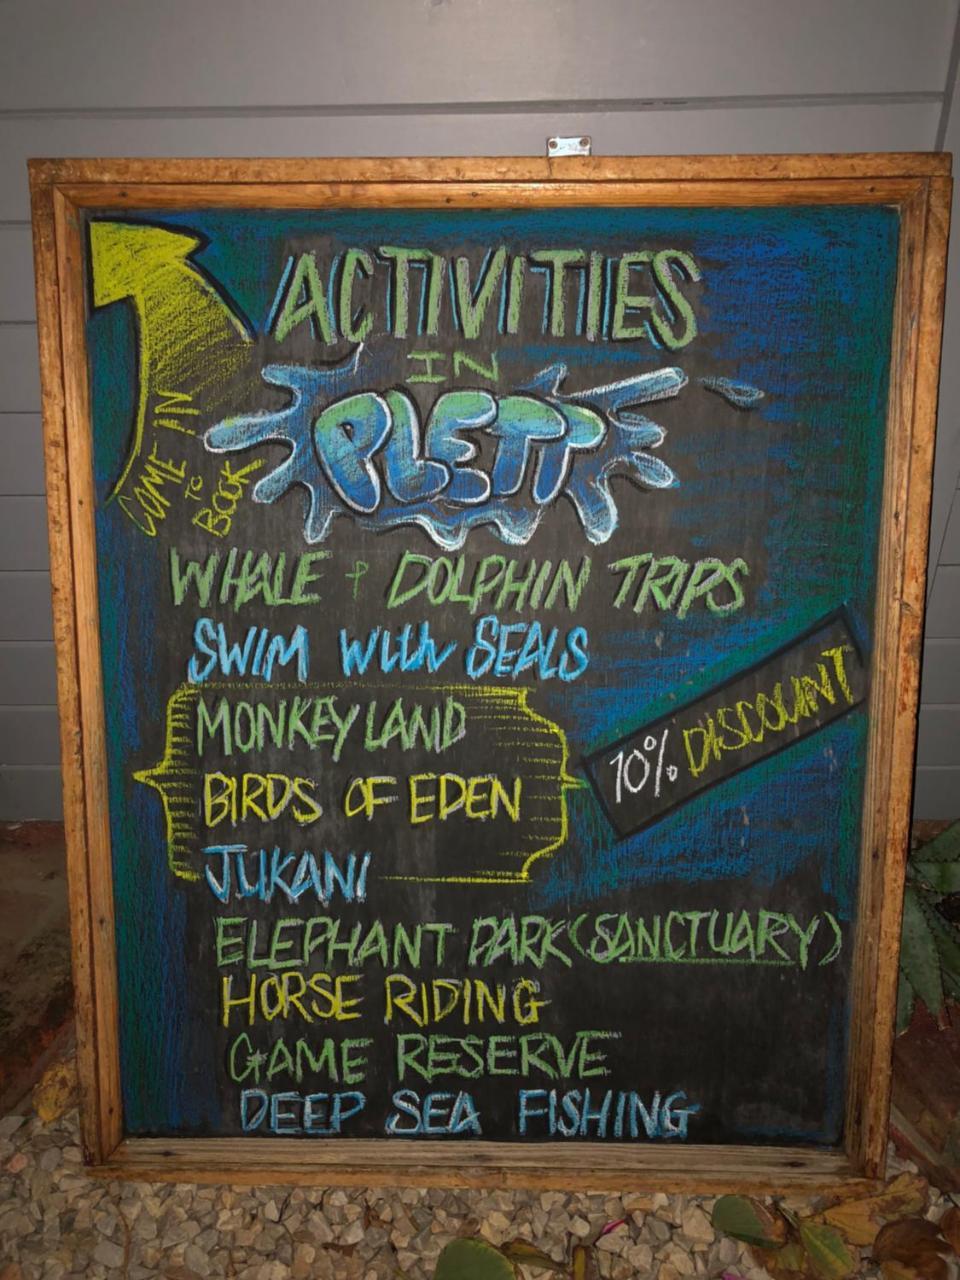 ACTIVITIES
IN
PLETT
COME IN
TO
BOOK
WHALE & DOLPHIN TRIPS
SWIM WITH SEALS
MONKEYLAND
BIRDS OF EDEN
JUKANI
10% DISCOUNT
ELEPHANT PARK (SANCTUARY)
HORSE RIDING
GAME RESERVE
DEEP SEA FISHING